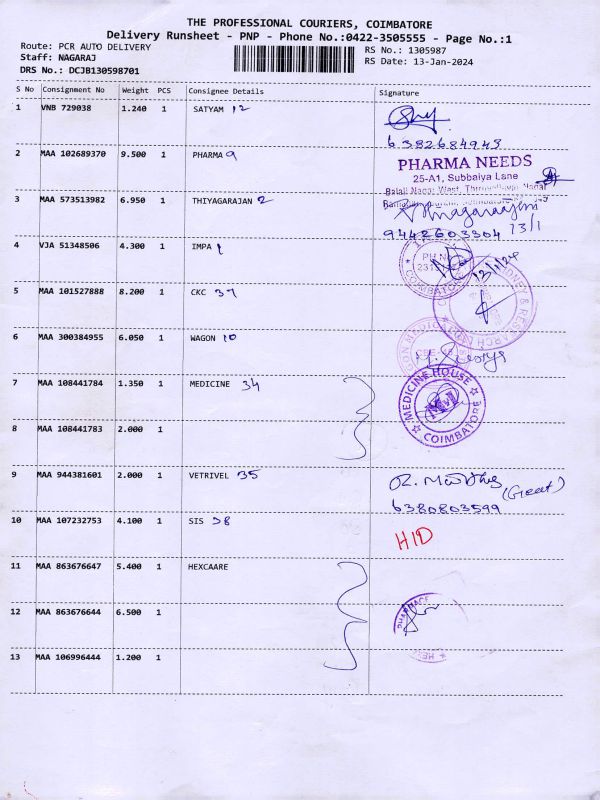 THE PROFESSIONAL COURIERS, COIMBATORE
Delivery Runsheet - PNP - Phone No.:0422-3505555 - Page No.:1
Route: PCR AUTO DELIVERY
RS No.: 1305987
Staff: NAGARAJ
RS Date: 13-Jan-2024
DRS No.: DCJB130598701
S No Consignment No Weight PCS Consignee Details Signature
1 VNB 729038 1.240 1 SATYAM 12
6382684943
2 MAA 102689370 9.500 1 PHARMA 9
PHARMA NEEDS
25-A1, Subbaiya Lane
3 MAA 573513982 6.950 1 THIYAGARAJAN 2
9442603304 13/1
4 VJA 51348506 4.300 1 IMPA 1
COIMBATORE
13/1/24
5 MAA 101527888 8.200 1 CKC 37
6 MAA 300384955 6.050 1 WAGON 10
7 MAA 108441784 1.350 1 MEDICINE 34
MEDICINE HOUSE
COIMBATORE
8 MAA 108441783 2.000 1
9 MAA 944381601 2.000 1 VETRIVEL 35
6380803599
10 MAA 107232753 4.100 1 SIS 28
HID
11 MAA 863676647 5.400 1 HEXCAARE
12 MAA 863676644 6.500 1
13 MAA 106996444 1.200 1